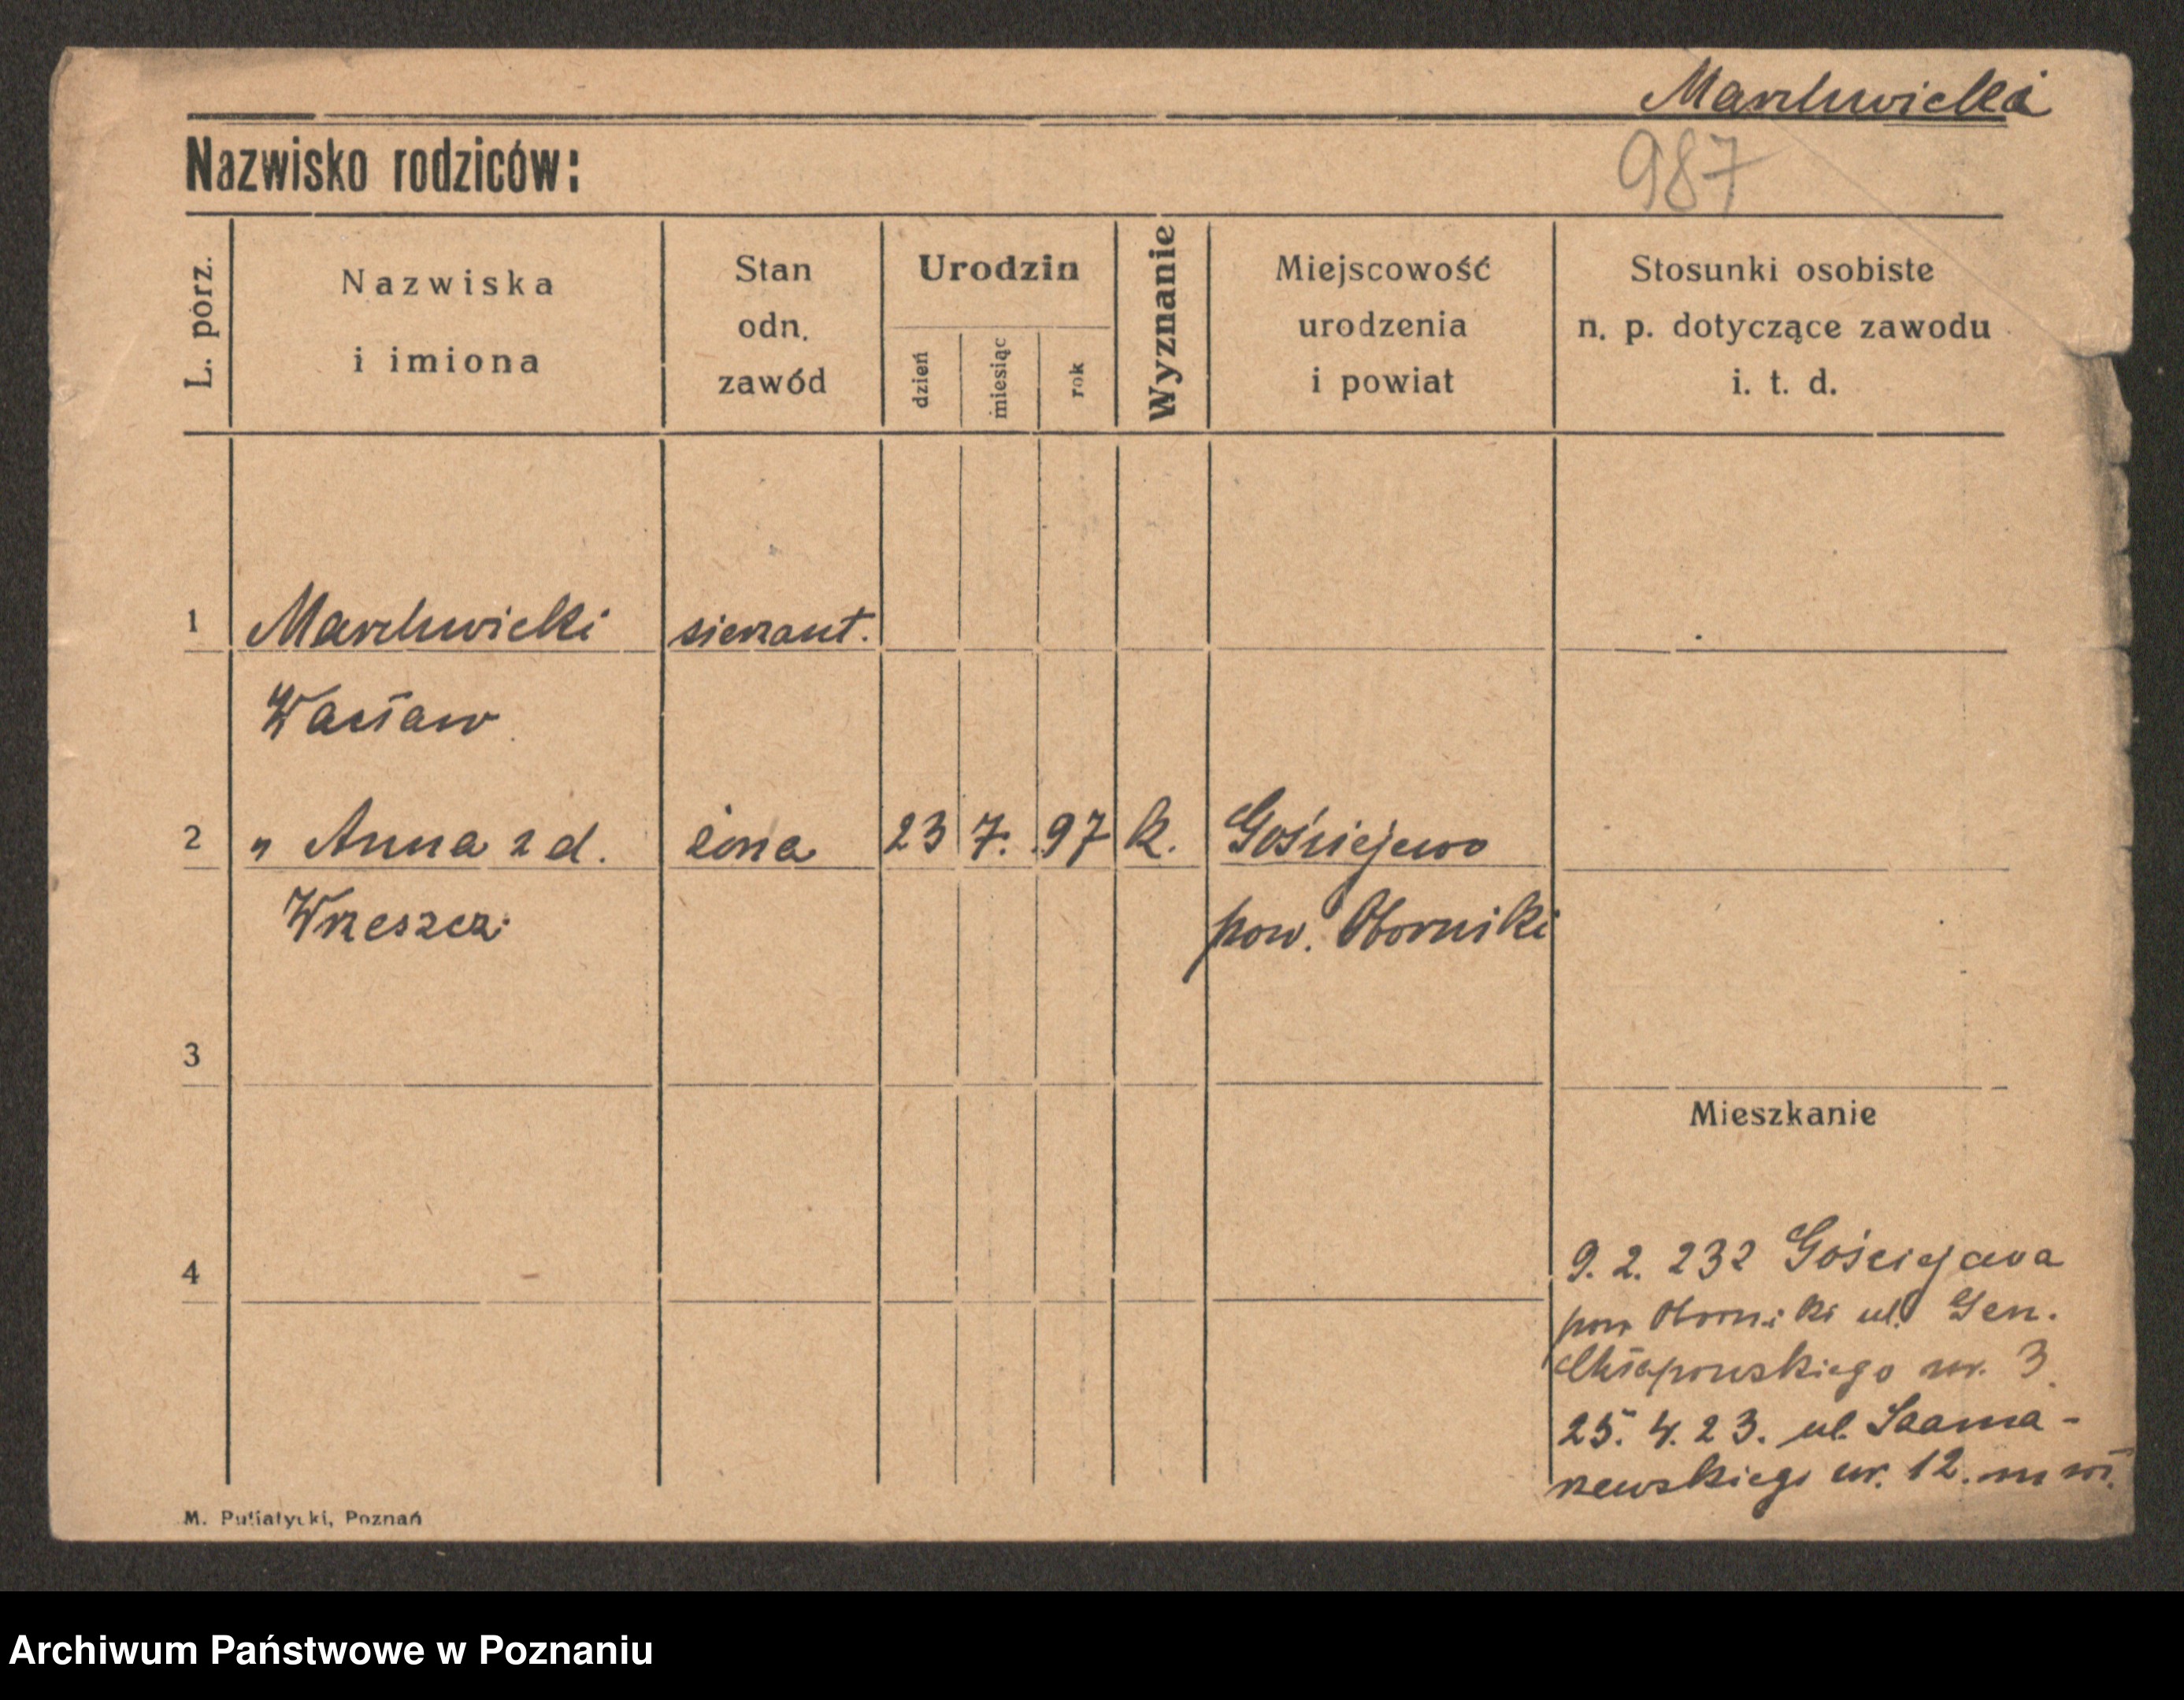 Marchwicki
987
Nazwisko rodziców:
L. porz.
Nazwiska
i imiona
Stan
odn.
zawód
Urodzin
dzień
miesiąc
rok
Wyznanie
Miejscowość
urodzenia
i powiat
Stosunki osobiste
n. p. dotyczące zawodu
i. t. d.
1 Marchwicki sierżant.
Wacław
2 " Anna z d. żona 23 7. 97 k. Gościejewo
Wrzeszcz pow. Oborniki
3
Mieszkanie
4
9. 2. 232 Gościejewa
pow Oborniki ul. Gen.
Chłapowskiego nr. 3
25. 4. 23. ul.
nr. 12.
M. Putiatycki, Poznań
Archiwum Państwowe w Poznaniu